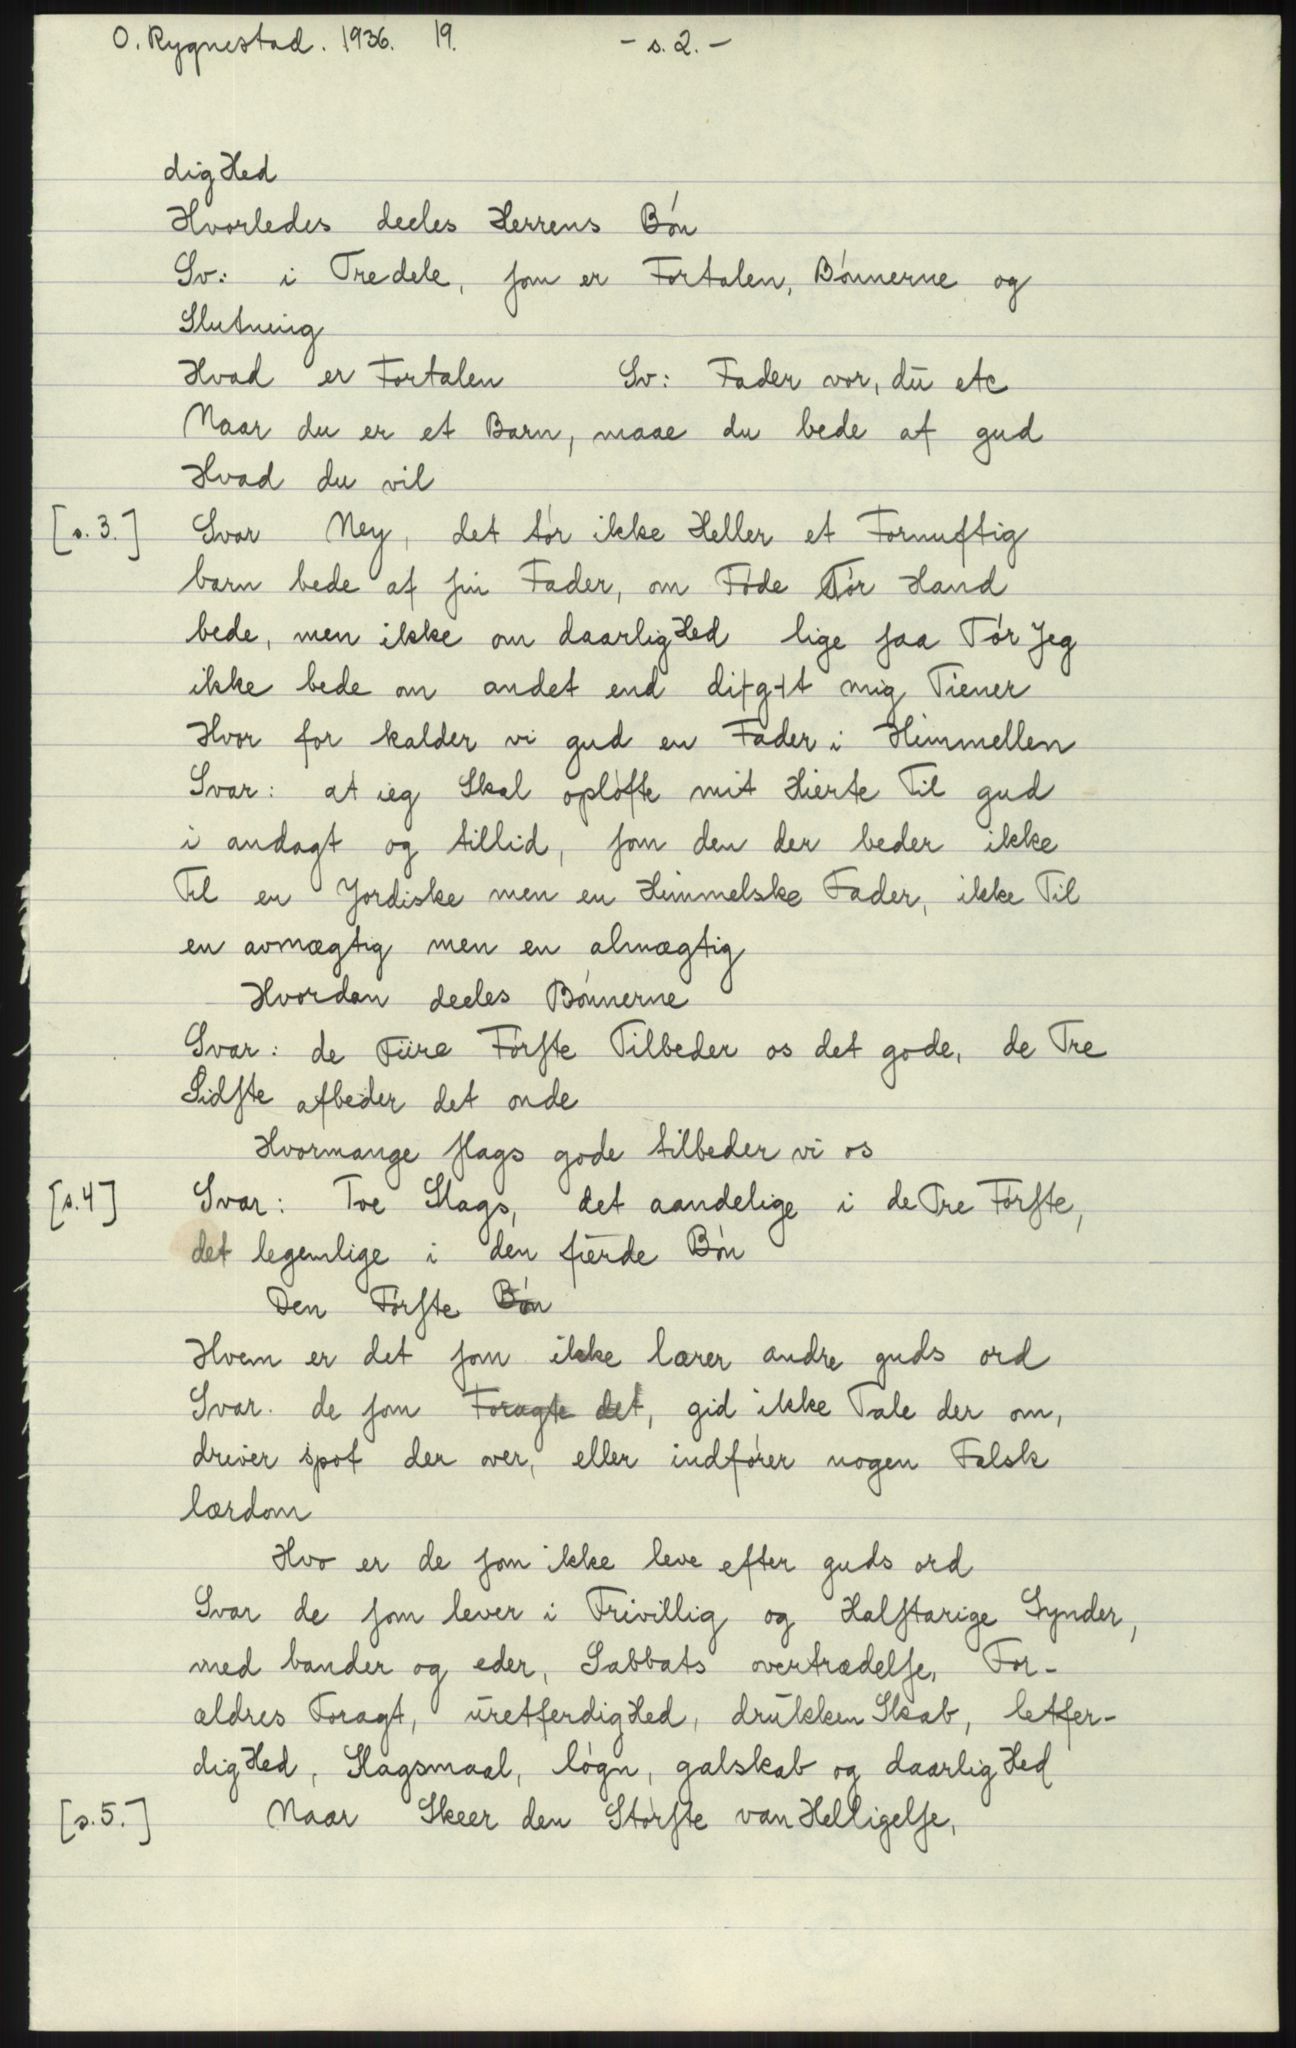 O. Rygnestad. 1936. 19. - s. 2. -
digHed
Hvorledes deeles Herrens Bøn
Sv: i Tredele, som er Fortalen, Bønnerne og
Slutning
Hvad er Fortalen Sv: Fader vor, du etc
Naar du er et Barn, maae du bede af gud
Hvad du vil
[s. 3.] Svar Ney, det tør ikke Heller et Fornuftig
barn bede af sin Fader, om Føde Tør Hand
bede, men ikke om daarligHed lige saa Tør Jeg
ikke bede om andet end mig Tiener
Hvor for kalder vi gud en Fader i Himmellen
Svar: at ieg Skal opløfte mit Hierte Til gud
i andagt og tillid, som den der beder ikke
Til en Jordiske men en Himmelske Fader, ikke Til
en avmægtig men en almægtig
Hvordan deeles Bønnerne
Svar: de Fiire Første Tilbeder os det gode, de Tre
Sidste afbeder det onde
Hvormange slags gode tilbeder vi os
[s. 4] Svar: Toe Slags, det aandelige i de Tre Første,
det legemlige i den fierde Bøn
Den Første Bøn
Hvem er det som ikke lærer andre guds ord
Svar. de som Foragte det, gid ikke Tale der om,
driver spot der over, eller indfører nogen Falsk
lærdom
Hvo er de som ikke leve efter guds ord
Svar de som lever i Frivillig og Halstarige Synder,
med bander og eder, Sabbats overtrædelse, For-
ældres Foragt, uretferdigHed, drukken Skab, letfer-
digHed, Slagsmaal, løgn, galskab og daarligHed
[s. 5.] Naar Skeer den Største vanHelligelse,